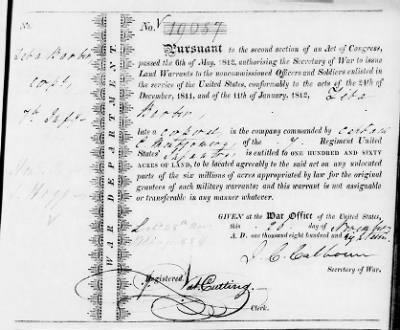 No. 19087
Pursuant to the second section of an Act of Congress,
passed the 6th of May, 1812, authorising the Secretary of War to issue
Land Warrants to the noncommissioned Officers and Soldiers enlisted in
the service of the United States, conformably to the acts of the 24th of
December, 1811, and of the 11th of January, 1812,
Barber,
late a in the company commanded by
Montgomery of the Regiment United
States' Infantry, is entitled to ONE HUNDRED AND SIXTY
ACRES OF LAND, to be located agreeably to the said act on any unlocated
parts of the six millions of acres appropriated by law for the original
grantees of such military warrants; and this warrant is not assignable
or transferable in any manner whatever.
GIVEN at the War Office of the United States,
this 20 day of
A. D. one thousand eight hundred and
J. C. Calhoun
Secretary of War.
Registered
Nat. Cutting.
Clerk.
WAR DEPARTMENT.
Barber
Corpl,
7th Inft